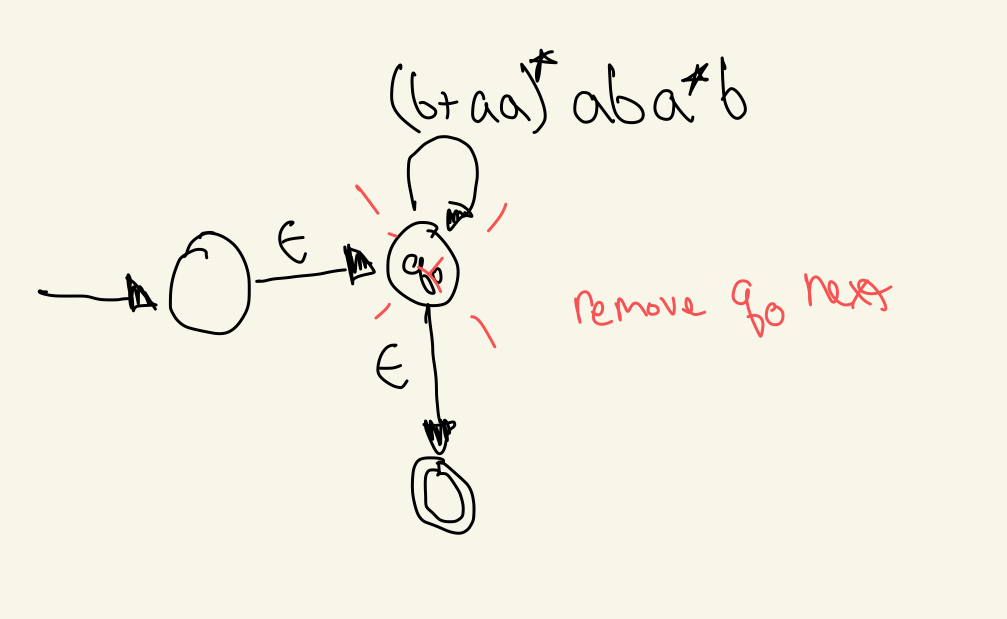 (b+aa)* aba*b
ϵ
q₀
remove q₀ next
ϵ